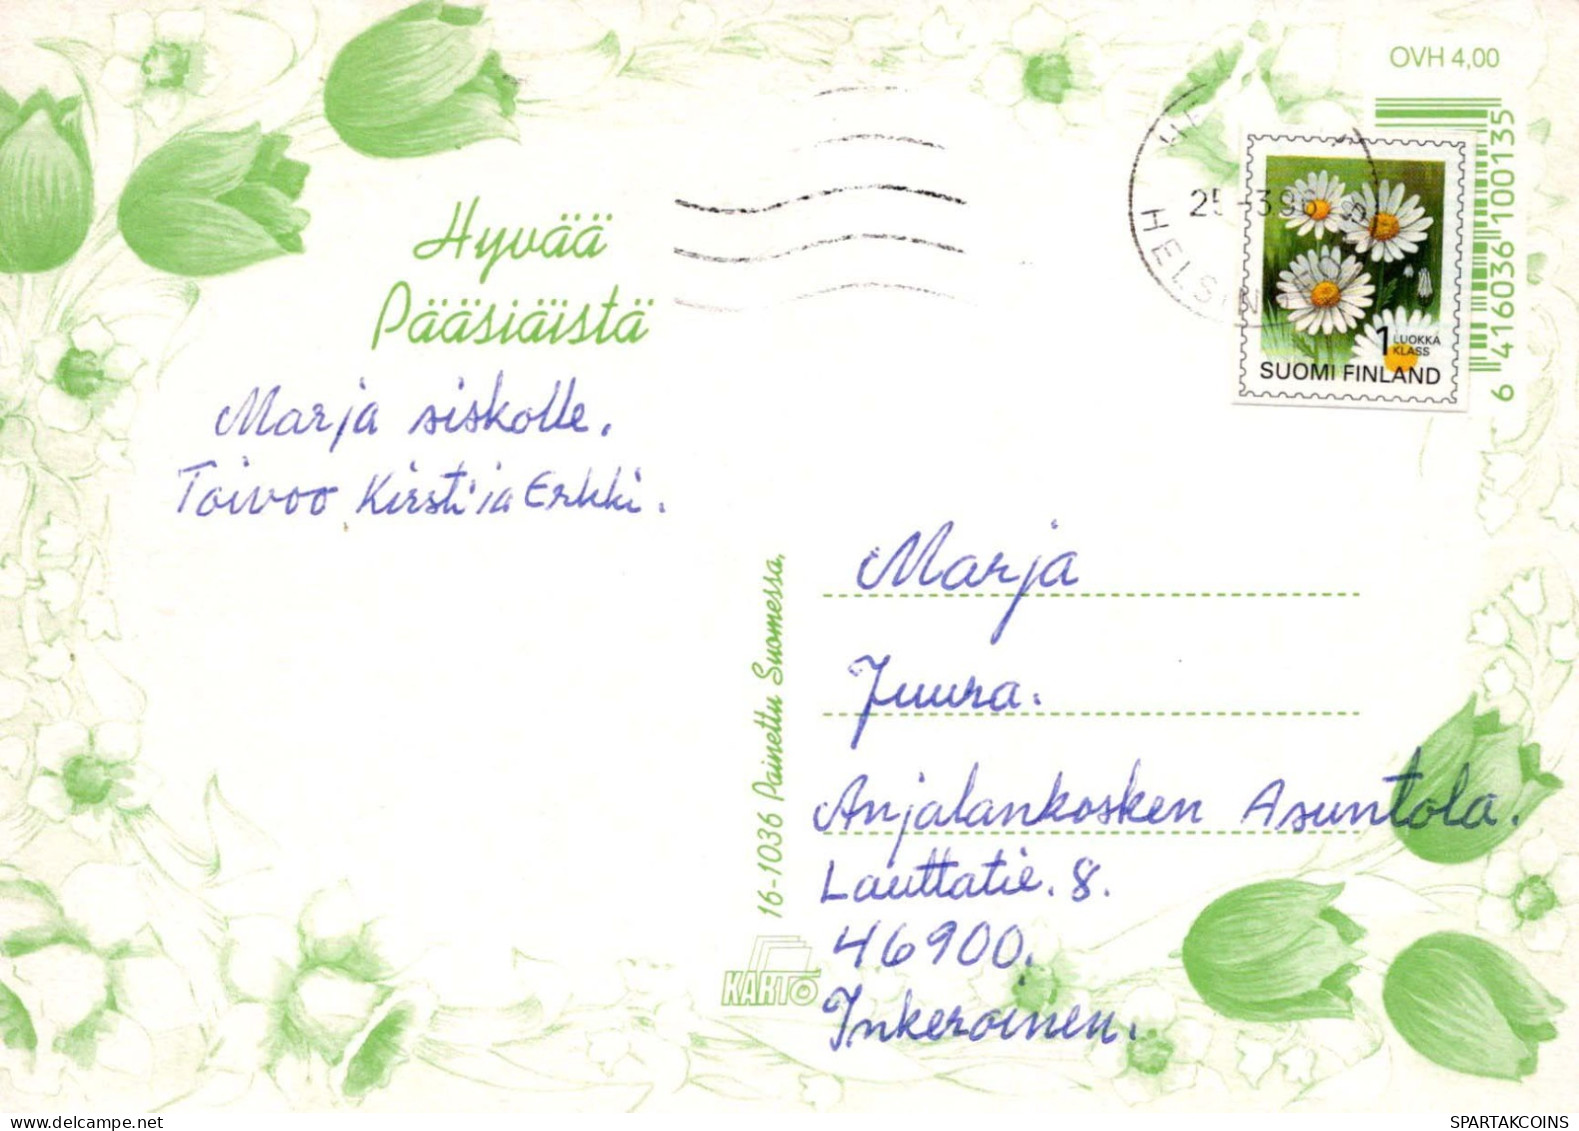 OVH 4,00
6 416036 100135
HELSIN
25-3.96
1 LUOKKA
KLASS
SUOMI FINLAND
Hyvää
Pääsiäistä
Marja siskolle.
Toivoo Kirsti ja Erkki.
16-1036 Painettu Suomessa.
KARTO
Marja
Juura.
Anjalankosken Asuntola.
Lauttatie. 8.
46900.
Inkeroinen.
delcampe.net
SPARTAKCOINS